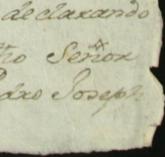 declarando
ho Señor
dro Joseph